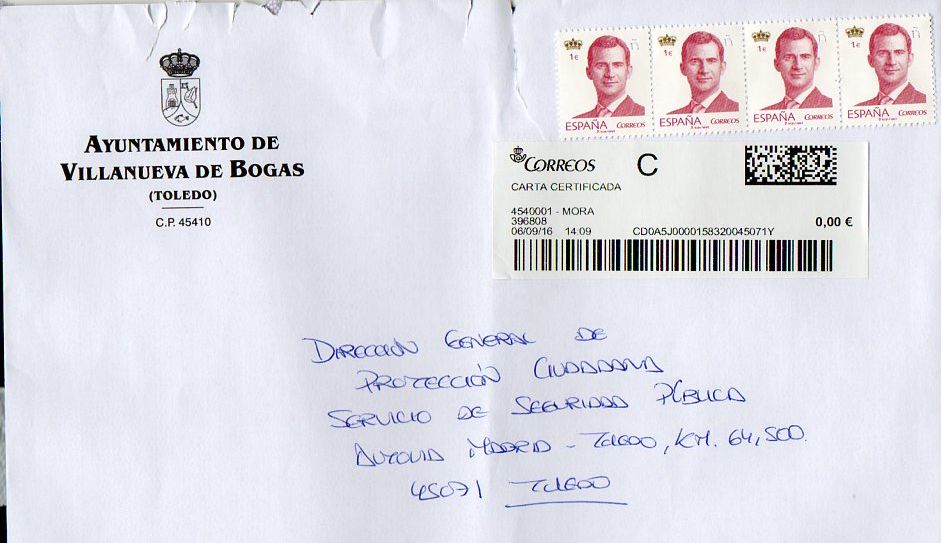 AYUNTAMIENTO DE
VILLANUEVA DE BOGAS
(TOLEDO)
C.P. 45410
1€ ñ
ESPAÑA CORREOS
1€ ñ
ESPAÑA CORREOS
1€ ñ
ESPAÑA CORREOS
1€ ñ
ESPAÑA CORREOS
CORREOS C
CARTA CERTIFICADA
4540001 - MORA
396808
06/09/16 14:09 CD0A5J0000158320045071Y
0,00 €
DIRECCIÓN GENERAL DE
PROTECCIÓN CIUDADANA
SERVICIO DE SEGURIDAD PÚBLICA
AUTOVIA MADRID - TOLEDO, KM. 64,500.
45071 TOLEDO